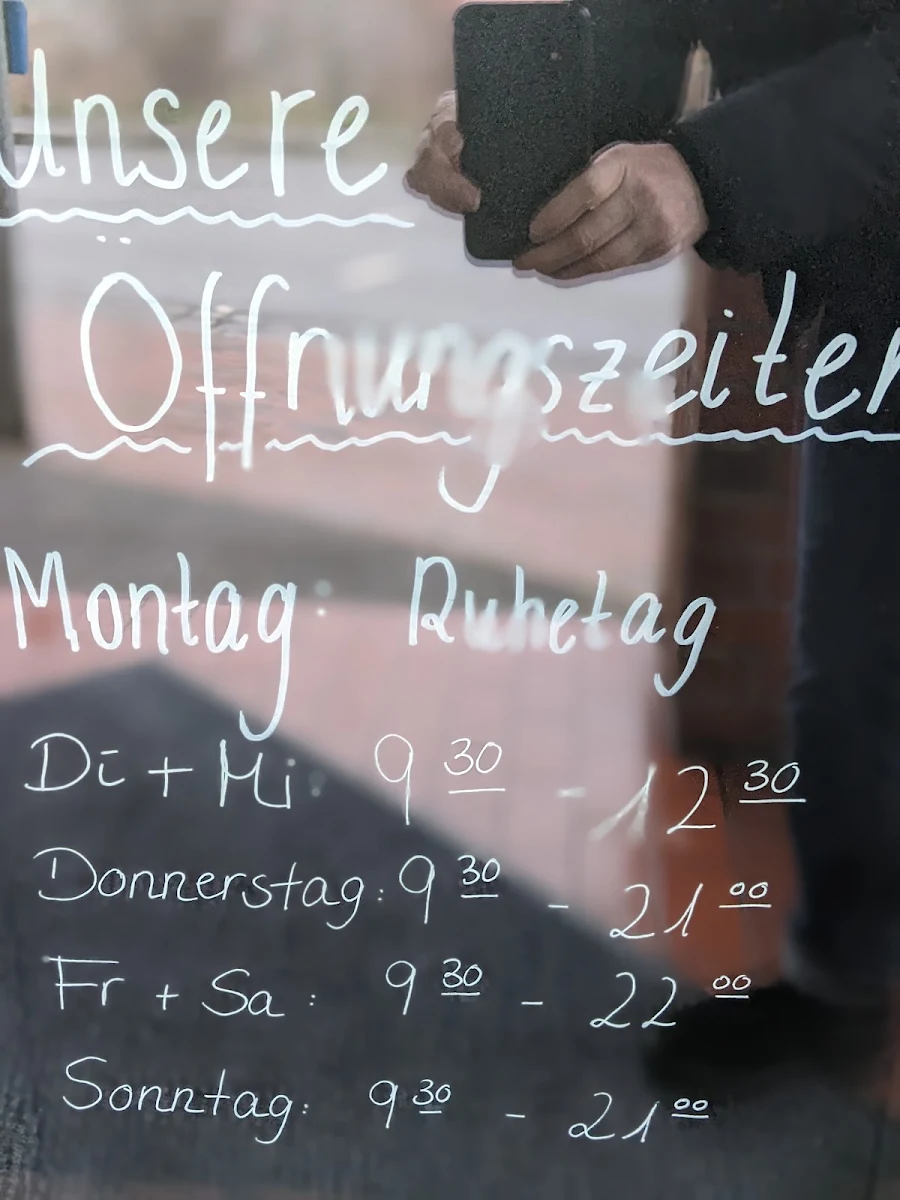 Unsere
Öffnungszeiten
Montag: Ruhetag
Di + Mi: 9 30 - 12 30
Donnerstag: 9 30 - 21 00
Fr + Sa: 9 30 - 22 00
Sonntag: 9 30 - 21 00